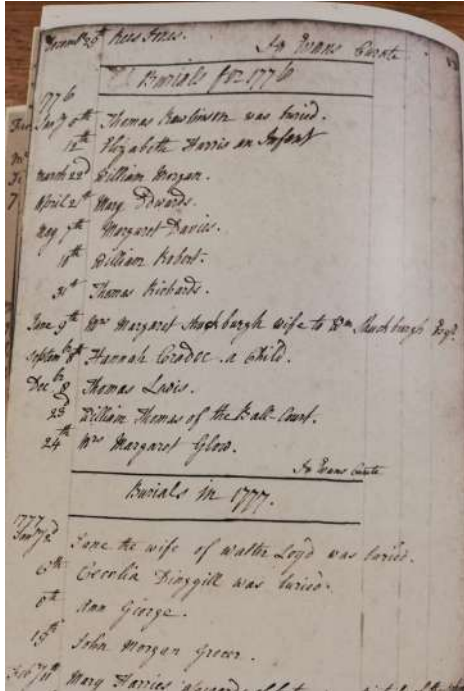 Decemb.r 29th Rees Jones.
Jn Evans Curate
Burials for 1776
1776
Jan.y 6th Thomas Rawlinson was buried.
12th Elizabeth Harris an Infant
March 22d William Morgan.
April 2d Mary Edwards.
May 7th Margaret Davies.
10th William Robert.
31st Thomas Richards.
June 9th Mrs Margaret Shuckburgh wife to Wm Shuckburgh Esqr.
Septemb.r 8th Hannah a Child.
Decbr 8 Thomas Lewis.
23d William Thomas of the Ball-Court.
24th Mrs Margaret
Jn Evans Curate
Burials in 1777.
1777
Jan.y 2d Jane the wife of Walter Loyd was buried.
6th Cecelia was buried.
8th Ann George.
15th John Morgan Grocer.
Mary Harries